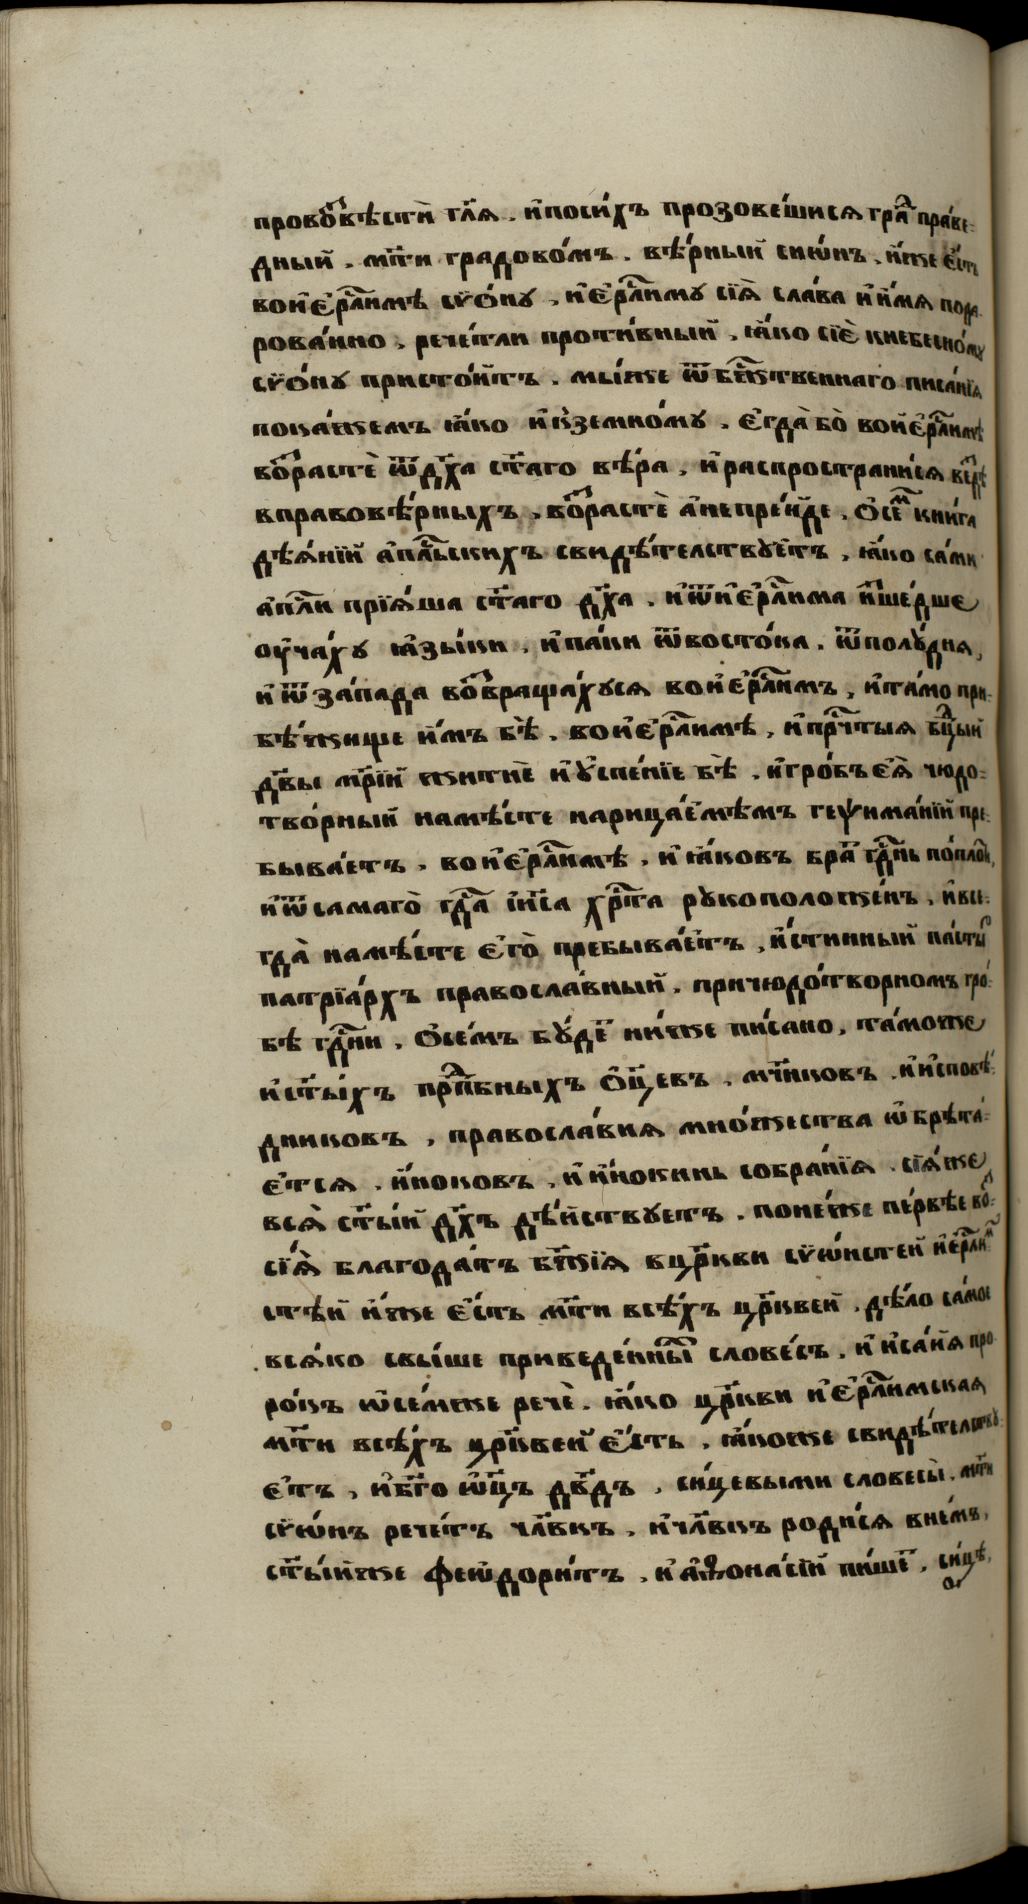 провоꙁвѣстѝ гл҃ѧ . и҆поси́хъ прозове́шисѧ гра́д пра́ве-
дный . мт҃и градово́мъ . вѣ́рный сиѡ́нъ . и҆́же є҆́сть
вои҆є҆рⷭ҇ли́мѣ сѵѻ́нꙋ , и҆є҆рⷭ҇ли́мꙋ сїѧ̀ сла́ва и҆и҆́мѧ пода-
рова́нно . рече́тли проти́вный . ꙗ҆́ко сїѐ кнебесно́мꙋ
сѵѻ́нꙋ присто́итъ . мы́же ѿбжⷭ҇твеннаго писа́нїѧ
пока́жемъ ꙗ҆́ко и҆кземно́мꙋ . є҆гда̀ бо̀ вои҆є҆рⷭ҇ли́мѣ
воꙁрастѐ ѿдх҃а ст҃аго вѣ́ра , и҆распространи́сѧ в срⷣцѣ
вправовѣ́рныхъ , воꙁрастѐ а҆непре́йде . ѻ҆се́мъ кни́га
дѣѧ́нїй а҆пⷭ҇льскихъ свидѣ́тельствꙋетъ , ꙗ҆́ко са́ми
а҆пⷭ҇ли прїѧ́ша ст҃аго дх҃а . и҆ѿи҆є҆рⷭ҇ли́ма и҆ꙁше́дше
оу҆ча́хꙋ ꙗ҆зы́ки . и҆па́ки ѿвосто́ка . ѿполꙋ́днѧ ,
и҆ѿза́пада воꙁвраща́хꙋсѧ вои҆є҆рⷭ҇ли́мъ , и҆та́мо при-
бѣ́жище и҆́мъ бѣ̀ . вои҆є҆рⷭ҇ли́мѣ , и҆прчⷭ҇тыѧ бцⷣы
дв҃ы мр҃їи житїѐ и҆ꙋ҆спе́нїе бѣ̀ . и҆гро́бъ є҆ѧ̀ чюдо-
тво́рный намѣ́сте нарица́емѣмъ геѱима́нїи пре-
быва́етъ . вои҆є҆рⷭ҇ли́мѣ , и҆ ꙗ҆́ковъ бра́т гдⷭ҇нь попло́ти ,
и҆ѿсамаго̀ гдⷭ҇а і҆и҃са хрⷭ҇та рꙋкоположе́нъ , и҆все-
гда̀ намѣ́сте є҆го̀ пребыва́етъ , и҆́стинный па́стырь
патрїа́рхъ правосла́вный . причюдо́творномъ гро́-
бѣ гдⷭ҇ни . ѻ҆се́мъ бꙋ́дет ни́же пи́сано , та́може
и҆ст҃ы́хъ прⷣпбныхъ ѻ҆ц҃евъ . мчн҃ковъ . и҆и҆сповѣ́-
дниковъ , правосла́виѧ мно́жества ѡ҆брѣта́-
є҆тсѧ . и҆́ноковъ , и҆и҆́нокинь собра́нїѧ . сїѧ́же
всѧ̀ ст҃ый дх҃ъ дѣ́йствꙋетъ . поне́же пе́рвѣе воꙁ-
сїѧ̀ благода́ть бж҃їѧ вцр҃кви сѵѡ́нстей и҆є҆рⷭ҇лим-
стѣй и҆́же є҆́сть мт҃и всѣ́хъ цр҃квей . дѣ́ло са́мое
всѧ́ко свы́ше приведе́нныⷯ слове́съ . и҆ и҆са́йѧ про-
ро́къ ѡ҆се́мже речѐ . ꙗ҆́ко цр҃кви и҆є҆рⷭ҇ли́мскаѧ
мт҃и всѣ́хъ цр҃квей є҆́сть , ꙗ҆́коже свидѣ́тельствꙋ-
є҆тъ , и҆бг҃оѡ҆ц҃ъ дв҃дъ , си́цевыми словесы̀ . мт҃и
сѵѡ́нъ рече́тъ чл҃вкъ , и҆чл҃вкъ роди́сѧ вне́мъ ,
ст҃ы́йже феѡдори́тъ , и҆ а҆ѳона́сїй пи́шет , си́це ,